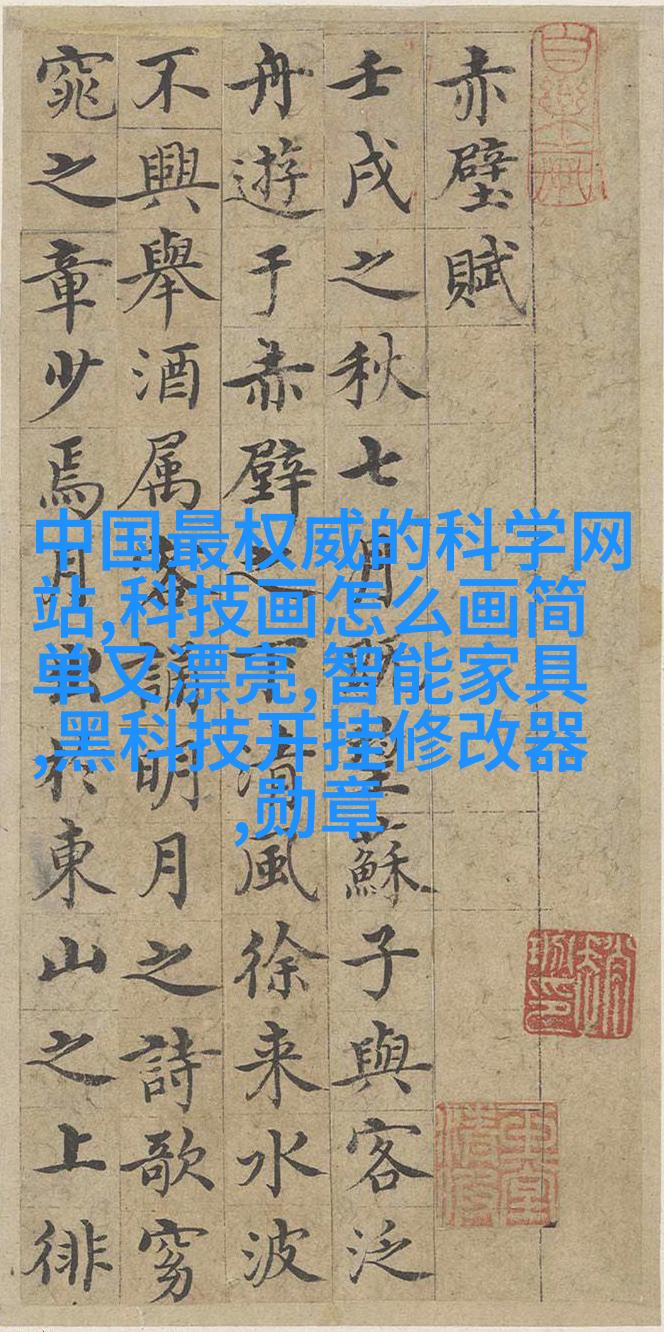 赤壁賦
壬戌之秋七月既望蘇子與客泛
舟遊于赤壁之下清風徐来水波
不興舉酒属客誦明月之詩歌窈
窕之章少焉月出於東山之上徘
中国最权威的科学网
站,科技画怎么画简
单又漂亮,智能家具
,黑科技开挂修改器
,勋章